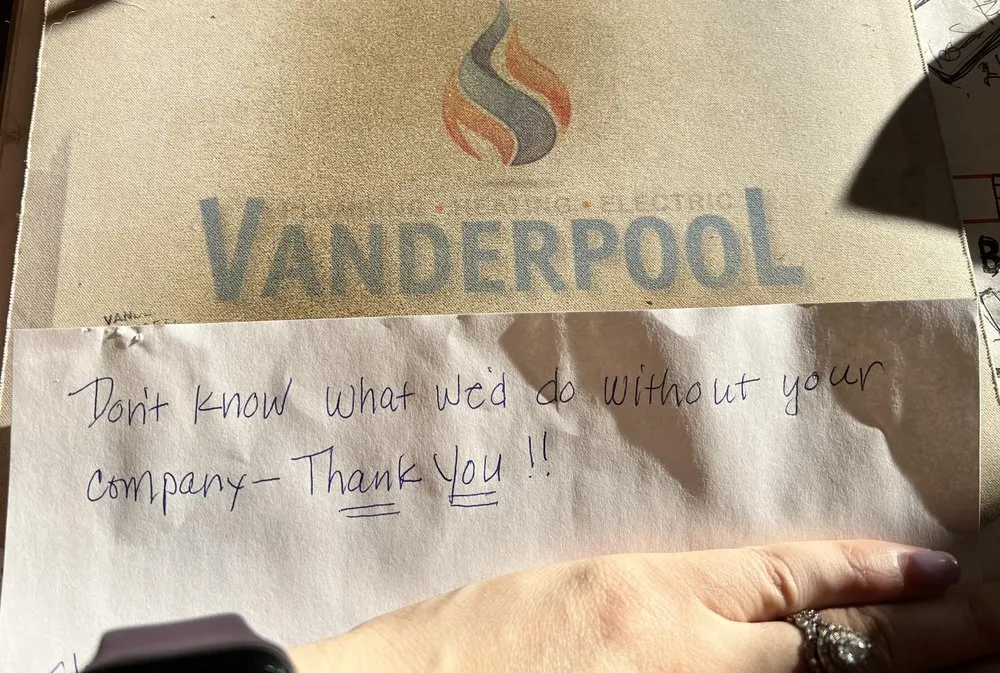 PLUMBING • HEATING • ELECTRIC
VANDERPOOL
Don't know what we'd do without your
company – Thank You !!